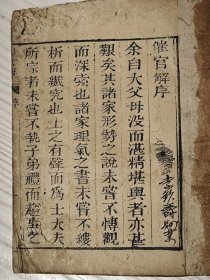 催官解序
余自大父母沒而湛精堪輿者亦甚
艱矣其諸家形勢之說未嘗不博觀
而深索也諸家理氣之書未嘗不縷
析而織究也士之有聲而為士大夫
所宗者未嘗不執子弟禮而趨事之